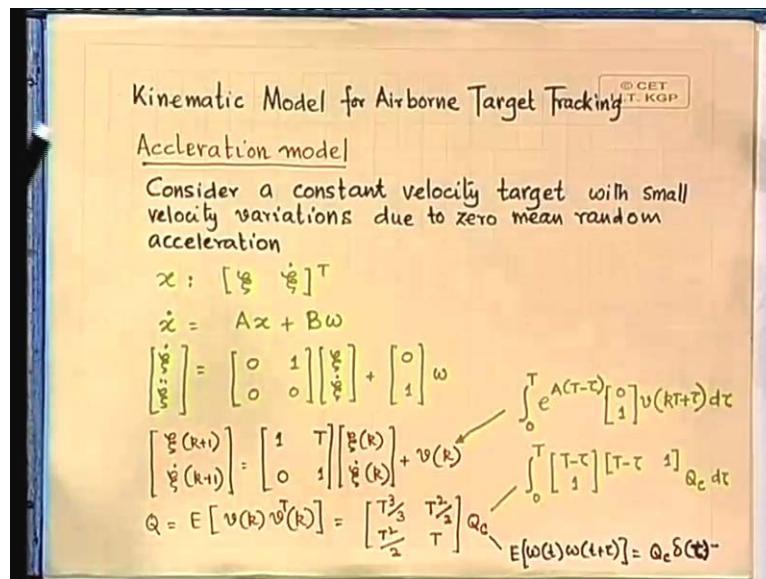 © CET
I.T. KGP
Kinematic Model for Airborne Target Tracking
Accleration model
Consider a constant velocity target with small
velocity variations due to zero mean random
acceleration
x : [ξ ξ̇]ᵀ
ẋ = Ax + Bω
[ξ̇; ξ̈] = [0 1; 0 0] [ξ; ξ̇] + [0; 1] ω
∫₀ᵀ e^{A(T-τ)} [0; 1] v(kT+τ) dτ
[ξ(k+1); ξ̇(k+1)] = [1 T; 0 1] [ξ(k); ξ̇(k)] + v(k)
∫₀ᵀ [T-τ; 1] [T-τ 1] Q_c dτ
Q = E[v(k) vᵀ(k)] = [T³/3 T²/2; T²/2 T] Q_c
E[ω(t)ω(t+τ)] = Q_c δ(t)